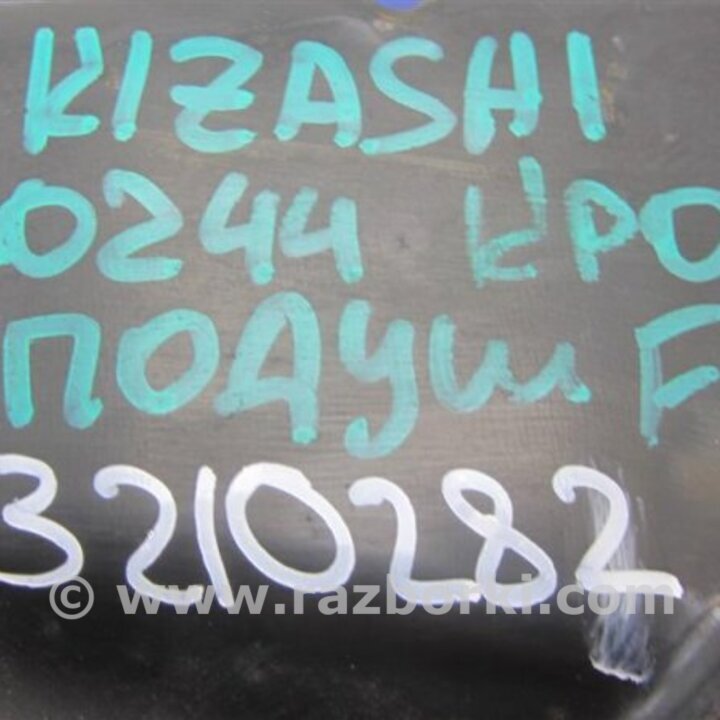 KIZASHI
0244 КРО
ПОДУШ F
3210282
© www.razborki.com